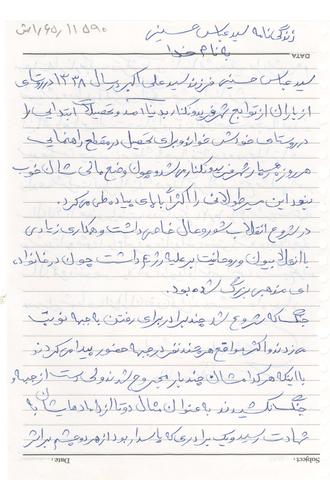 ۱۱۵۹۰ /۶۵/ش
زندگی نامه سید عباس حسینی
به نام خدا
DATA
سید عباس حسینی فرزند سید علی اکبر در سال ۱۳۳۸ در روستای
از باران از توابع شهر فریدونکنار بدنیا آمد و تحصیلات ابتدایی را
در روستای خودش خواند و برای تحصیل در مقطع راهنمایی
هر روز به شهر فریدونکنار می رفت و چون وضع مالی شان خوب
نبود این مسیر طولانی را اکثراً با پای پیاده طی می کرد.
در شروع انقلاب شور و حال خاصی داشت و همکاری زیادی
با انقلابیون و روحانیت بر علیه رژیم داشت چون در خانواده
ای مذهبی بزرگ شده بود.
جنگ که شروع شد چند برادر برای رفتن به جبهه نوبت
می زدند و اکثر مواقع هر چند نفر در جبهه حضور پیدا می کردند
با اینکه هر کدامشان چند بار مجروح شدند ولی دست از جبهه و
جنگ نکشیدند به عنوان مثال دو تا از دامادهایشان به
شهادت رسید و یک برادری که پاسدار بود از هر دو چشم بر اثر
Subject:
Date: